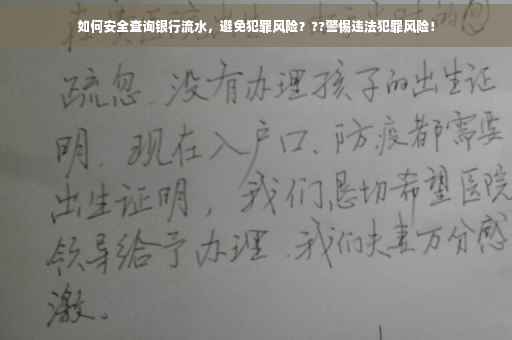 如何安全查询银行流水，避免犯罪风险？??警惕违法犯罪风险！
疏忽、没有办理孩子的出生证
明．现在入户口、防疫都需要
出生证明，我们恳切希望医院
领导给予办理．我们夫妻万分感
激。